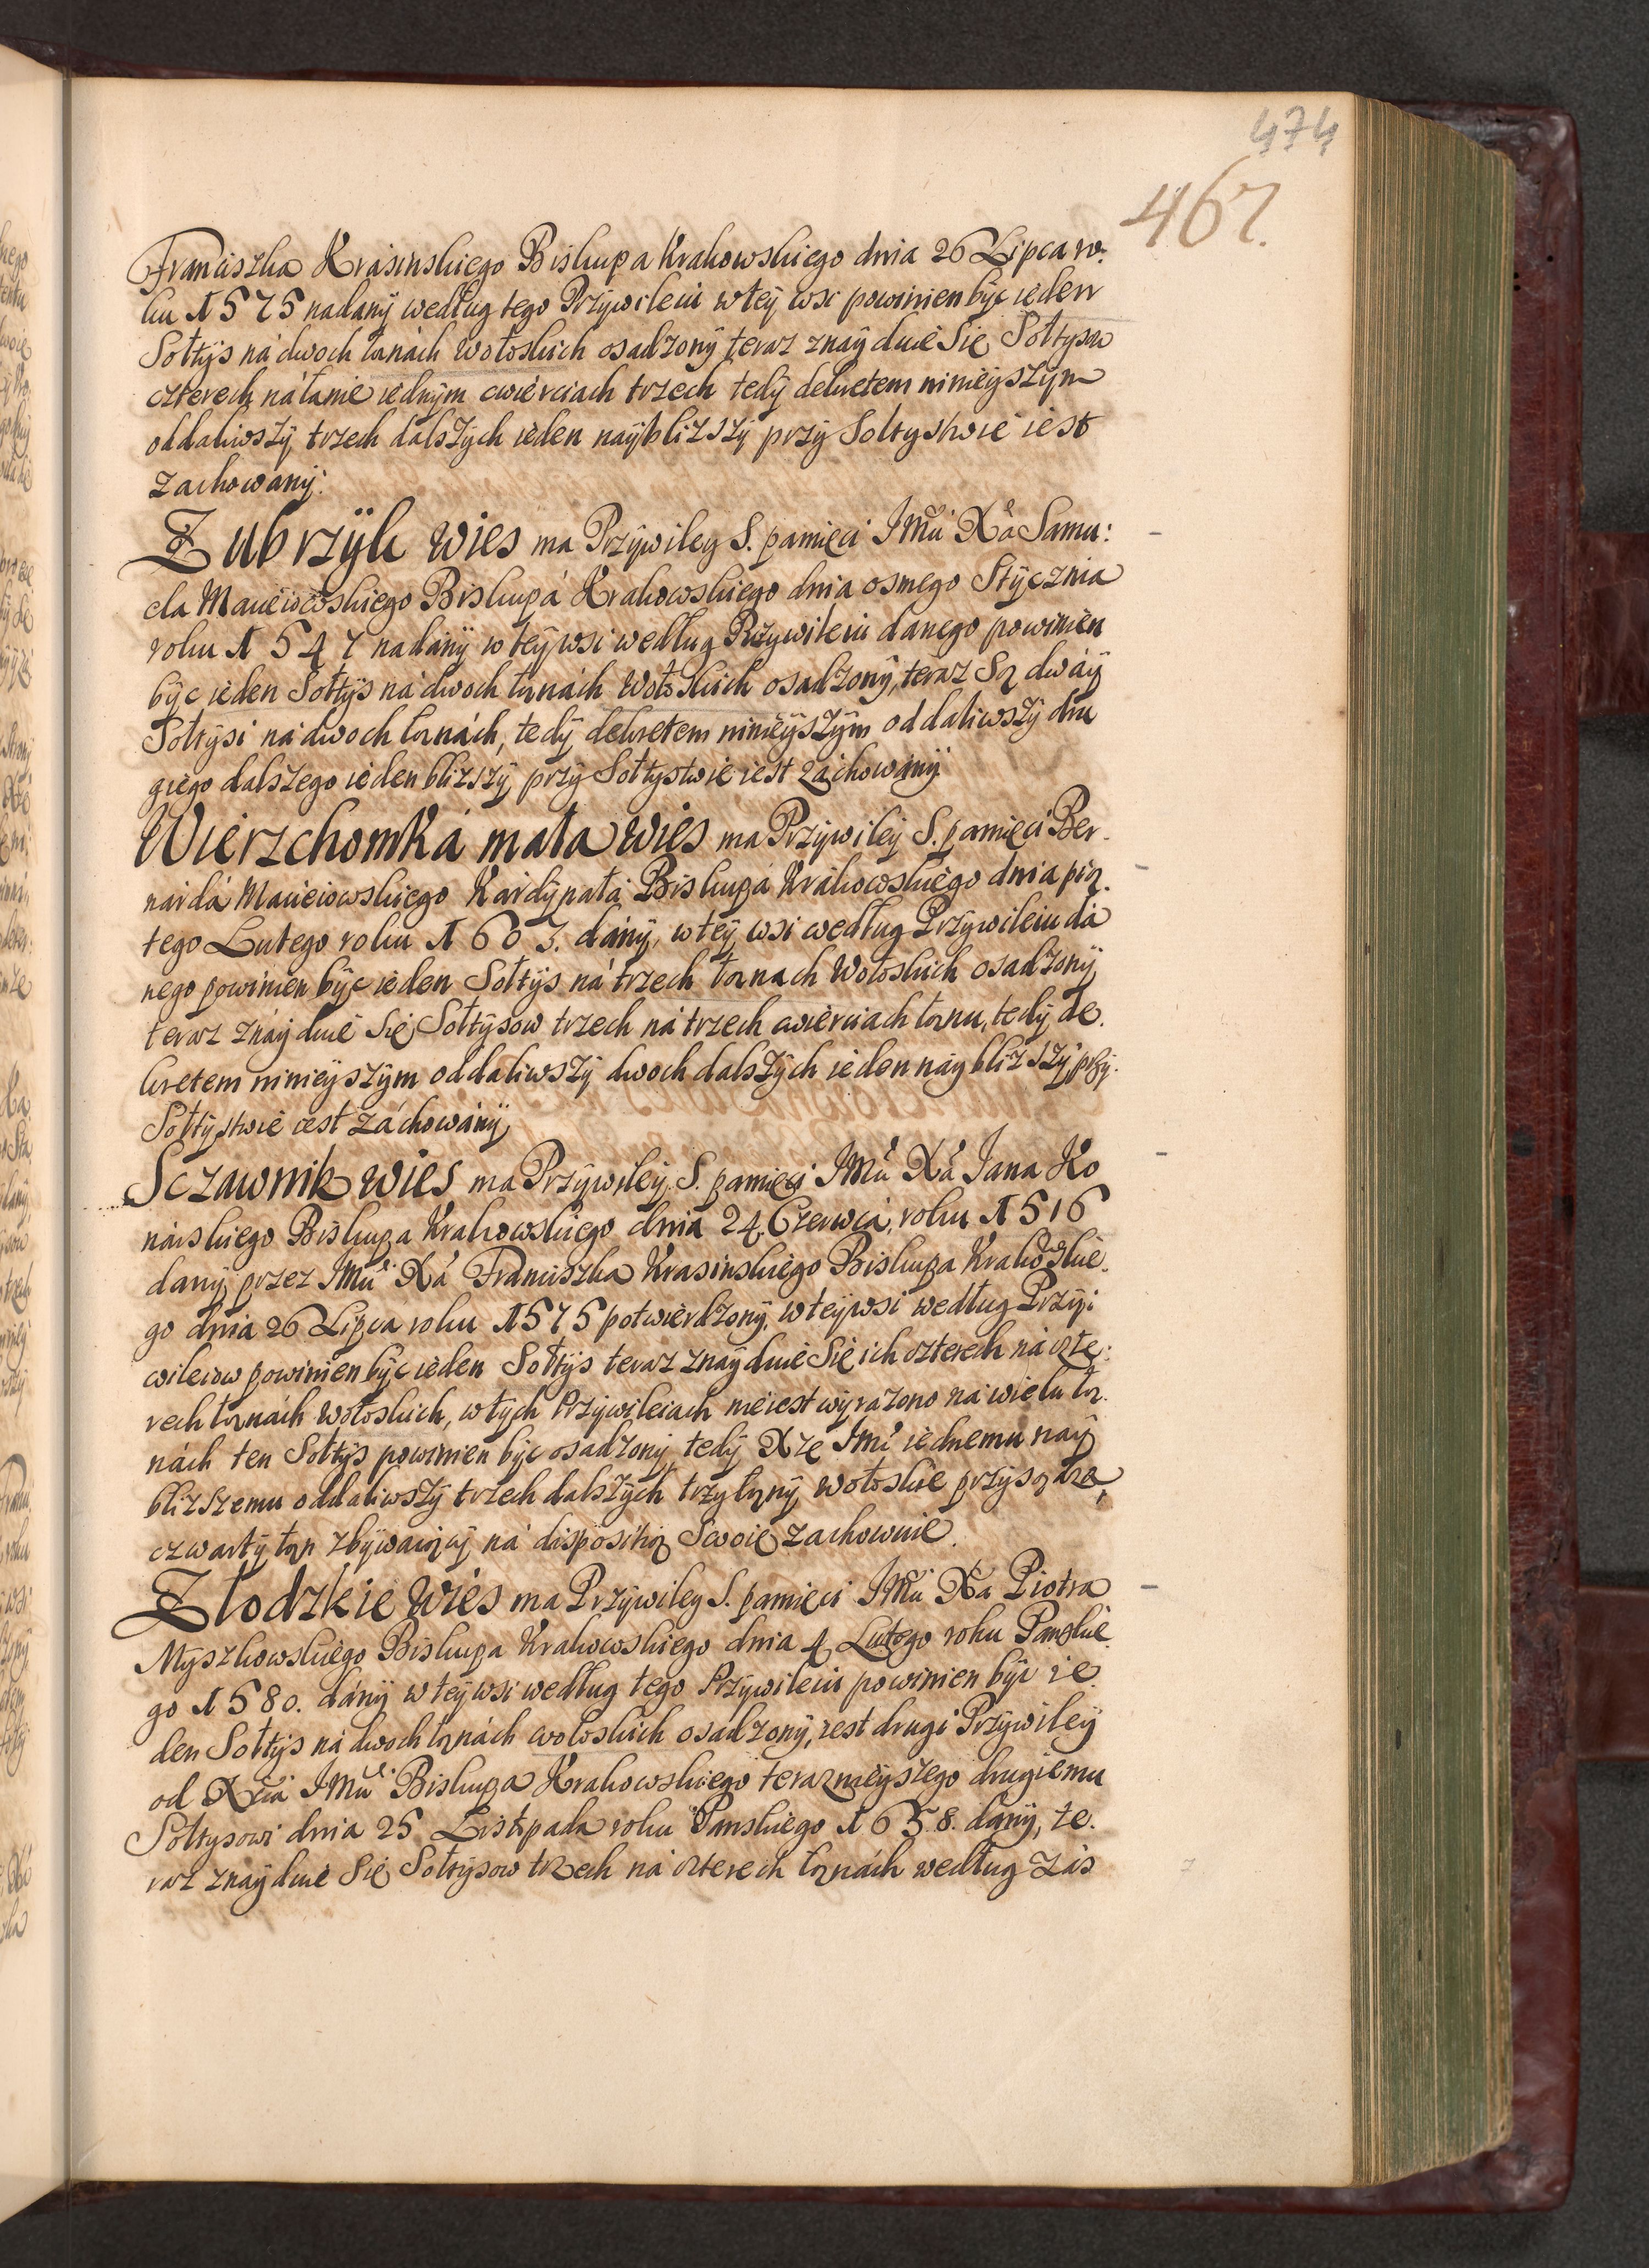 474
467.
Franciszka Krasinskiego Biskupa Krakowskiego dnia 26 Lipca ro:
ku 1575 nadany według tego Przywileiu w tey wsi powinien byc ieden
Sołtys ná dwoch łanách Wołoskich osadzony teraz znayduie Się Sołtysow
czterech ná łanie iednym cwierciach trzech tedy dekretem ninieyszym
oddaliwszy trzech dalszych ieden naybliższy przy Sołtystwie iest
zachowany.
Zubrzyk wies ma Przywiley S. pamięci JMci Xa Samu:
ela Macieiowskiego Biskupá Krakowskiego dnia osmego Stycznia
roku 1547 nadany w tey wsi według Przywileiu danego powinien
byc ieden Sołtys ná dwoch łanách Wołoskich osadzony, teraz Są dwáy
Sołtysi ná dwoch łanách, tedy dekretem ninieyszym oddaliwszy dru
giego dalszego ieden bliższy przy Sołtystwie iest záchowány
Wierzchomká mała wies ma Przywiley S. pamięci Ber-
nárdá Macieiowskiego Kárdynałá Biskupá Krákowskiego dnia pią-
tego Lutego roku 1603. dány, w tey wsi według Przywileiu dá
nego powinien byc ieden Sołtys ná trzech łanach Wołoskich osadzony
teraz znáyduie Się Sołtysow trzech ná trzech cwierciach łanu, tedy de-
kretem ninieyszym oddaliwszy dwoch dalszych ieden naybliższy przy
Sołtystwie iest záchowány
Sczawnik wies ma Przywiley S. pamięci JMci Xá Jana Ko
nárskiego Biskupa Krakowskiego dnia 24. Czerwcá roku 1516
dany przez JMci Xá Franciszka Krasinskiego Biskupa Krakowskie-
go dnia 26 Lipca roku 1575 potwierdzony, w tey wsi według Przy:
wileiow powinien byc ieden Sołtys teraz znayduie Się ich czterech ná czte:
rech łanách Wołoskich, w tych Przywileiach nieiest wyrazono ná wielu ła-
nách ten Sołtys powinien byc osadzony, tedy Xże Jmć iednemu nay
bliższemu oddaliwszy trzech dalszych trzy łany Wołoskie przysądza,
czwarty łan zbywaiący ná dispositią Swoię zachowuie.
Złodzkie wies ma Przywiley S. pamięci JMci Xa Piotra
Myszkowskiego Biskupa Krakowskiego dnia 4 Lutego roku Panskie
go 1580. dány w tey wsi według tego Przywileiu powinien byc ie
den Sołtys ná dwoch łanách wołoskich osádzony, iest drugi Przywiley
od Xcia JMci Biskupa Krakowskiego teraznieyszego drugiemu
Sołtysowi dnia 25 Listopada roku Panskiego 1658. dany, te-
raz znayduie Się Sołtysow trzech ná czterech łanách według zás